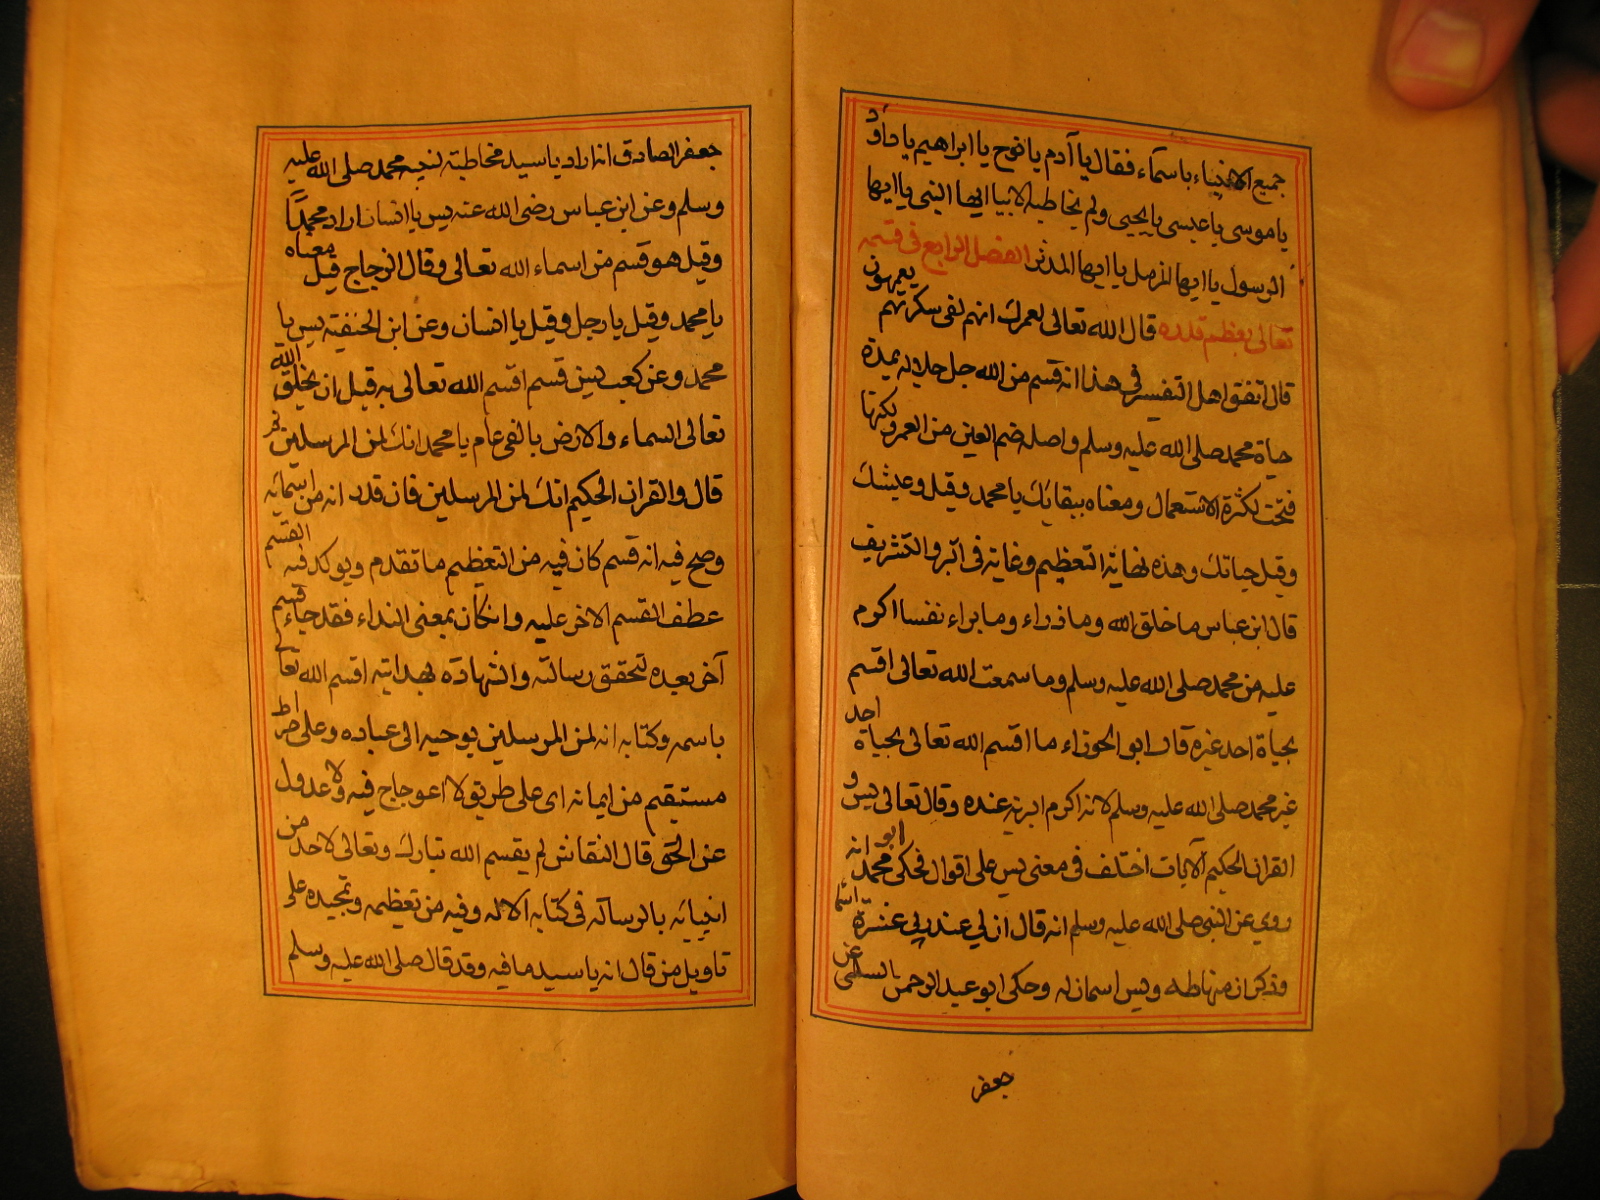 جميع الانبياء باسماء فقال يا آدم يا نوح يا ابراهيم يا داود
يا موسى يا عيسى يا يحيى ولم يخاطبه الا بيا ايها النبى يا ايها
الرسول يا ايها المزمل يا ايها المدثر الفصل الرابع فى قسمه
تعالى بعظم قدره قال الله تعالى لعمرك انهم لفى سكرتهم يعمهون
قال اتفق اهل التفسير فى هذا انه قسم من الله جل جلاله بمدة
حياة محمد صلى الله عليه وسلم واصله ضم العين من العمر ولكنها
فتحت لكثرة الاستعمال ومعناه ببقايك يا محمد وقيل وعيشك
وقيل حياتك وهذه نهاية التعظيم وغاية فى البر والتشريف
قال ابن عباس ما خلق الله وما ذراء وما براء نفسا اكرم
عليه من محمد صلى الله عليه وسلم وما سمعت الله تعالى اقسم
بحياة احد غيره قال ابو الجوزاء ما اقسم الله تعالى بحياة احد
غير محمد صلى الله عليه وسلم لانه اكرم البرية عنده وقال تعالى يس و
القران الحكيم الآيات اختلف فى معنى يس على اقوال فحكى ابو محمد انه
روي عن النبى صلى الله عليه وسلم انه قال ان لي عند ربي عشرة اسما
وذكر ان منها طه ويس اسمان له وحكى ابو عبد الرحمن السلمى عن
جعفر
جعفر الصادق انه اراد يا سيد مخاطبة لنبيه محمد صلى الله عليه
وسلم وعن ابن عباس رضى الله عنه يس يا انسان اراد محمدًا
وقيل هو قسم من اسماء الله تعالى وقال الزجاج قيل معناه
يا محمد وقيل يا رجل وقيل يا انسان وعن ابن الحنفية يس يا
محمد وعن كعب يس قسم اقسم الله تعالى به قبل ان يخلق الله
تعالى السماء والارض بالفى عام يا محمد انك لمن المرسلين ثم
قال والقران الحكيم انك لمن المرسلين فان قدر انه من اسمائه
وصح فيه انه قسم كان فيه من التعظيم ما تقدم ويوكد فيه القسم
عطف القسم الاخر عليه وان كان بمعنى النداء فقد جاء قسم
آخر بعده لتحقق رسالته والشهادة بهدايته اقسم الله تعالى
باسمه وكتابه انه لمن المرسلين بوحيه الى عباده وعلى صراط
مستقيم من ايمانه اى على طريق لا اعوجاج فيه ولا عدول
عن الحق قال النقاش لم يقسم الله تبارك وتعالى لاحد من
انبيائه بالرسالة فى كتابه الا له وفيه من تعظيمه وتمجيده على
تاويل من قال انه يا سيد ما فيه وقد قال صلى الله عليه وسلم